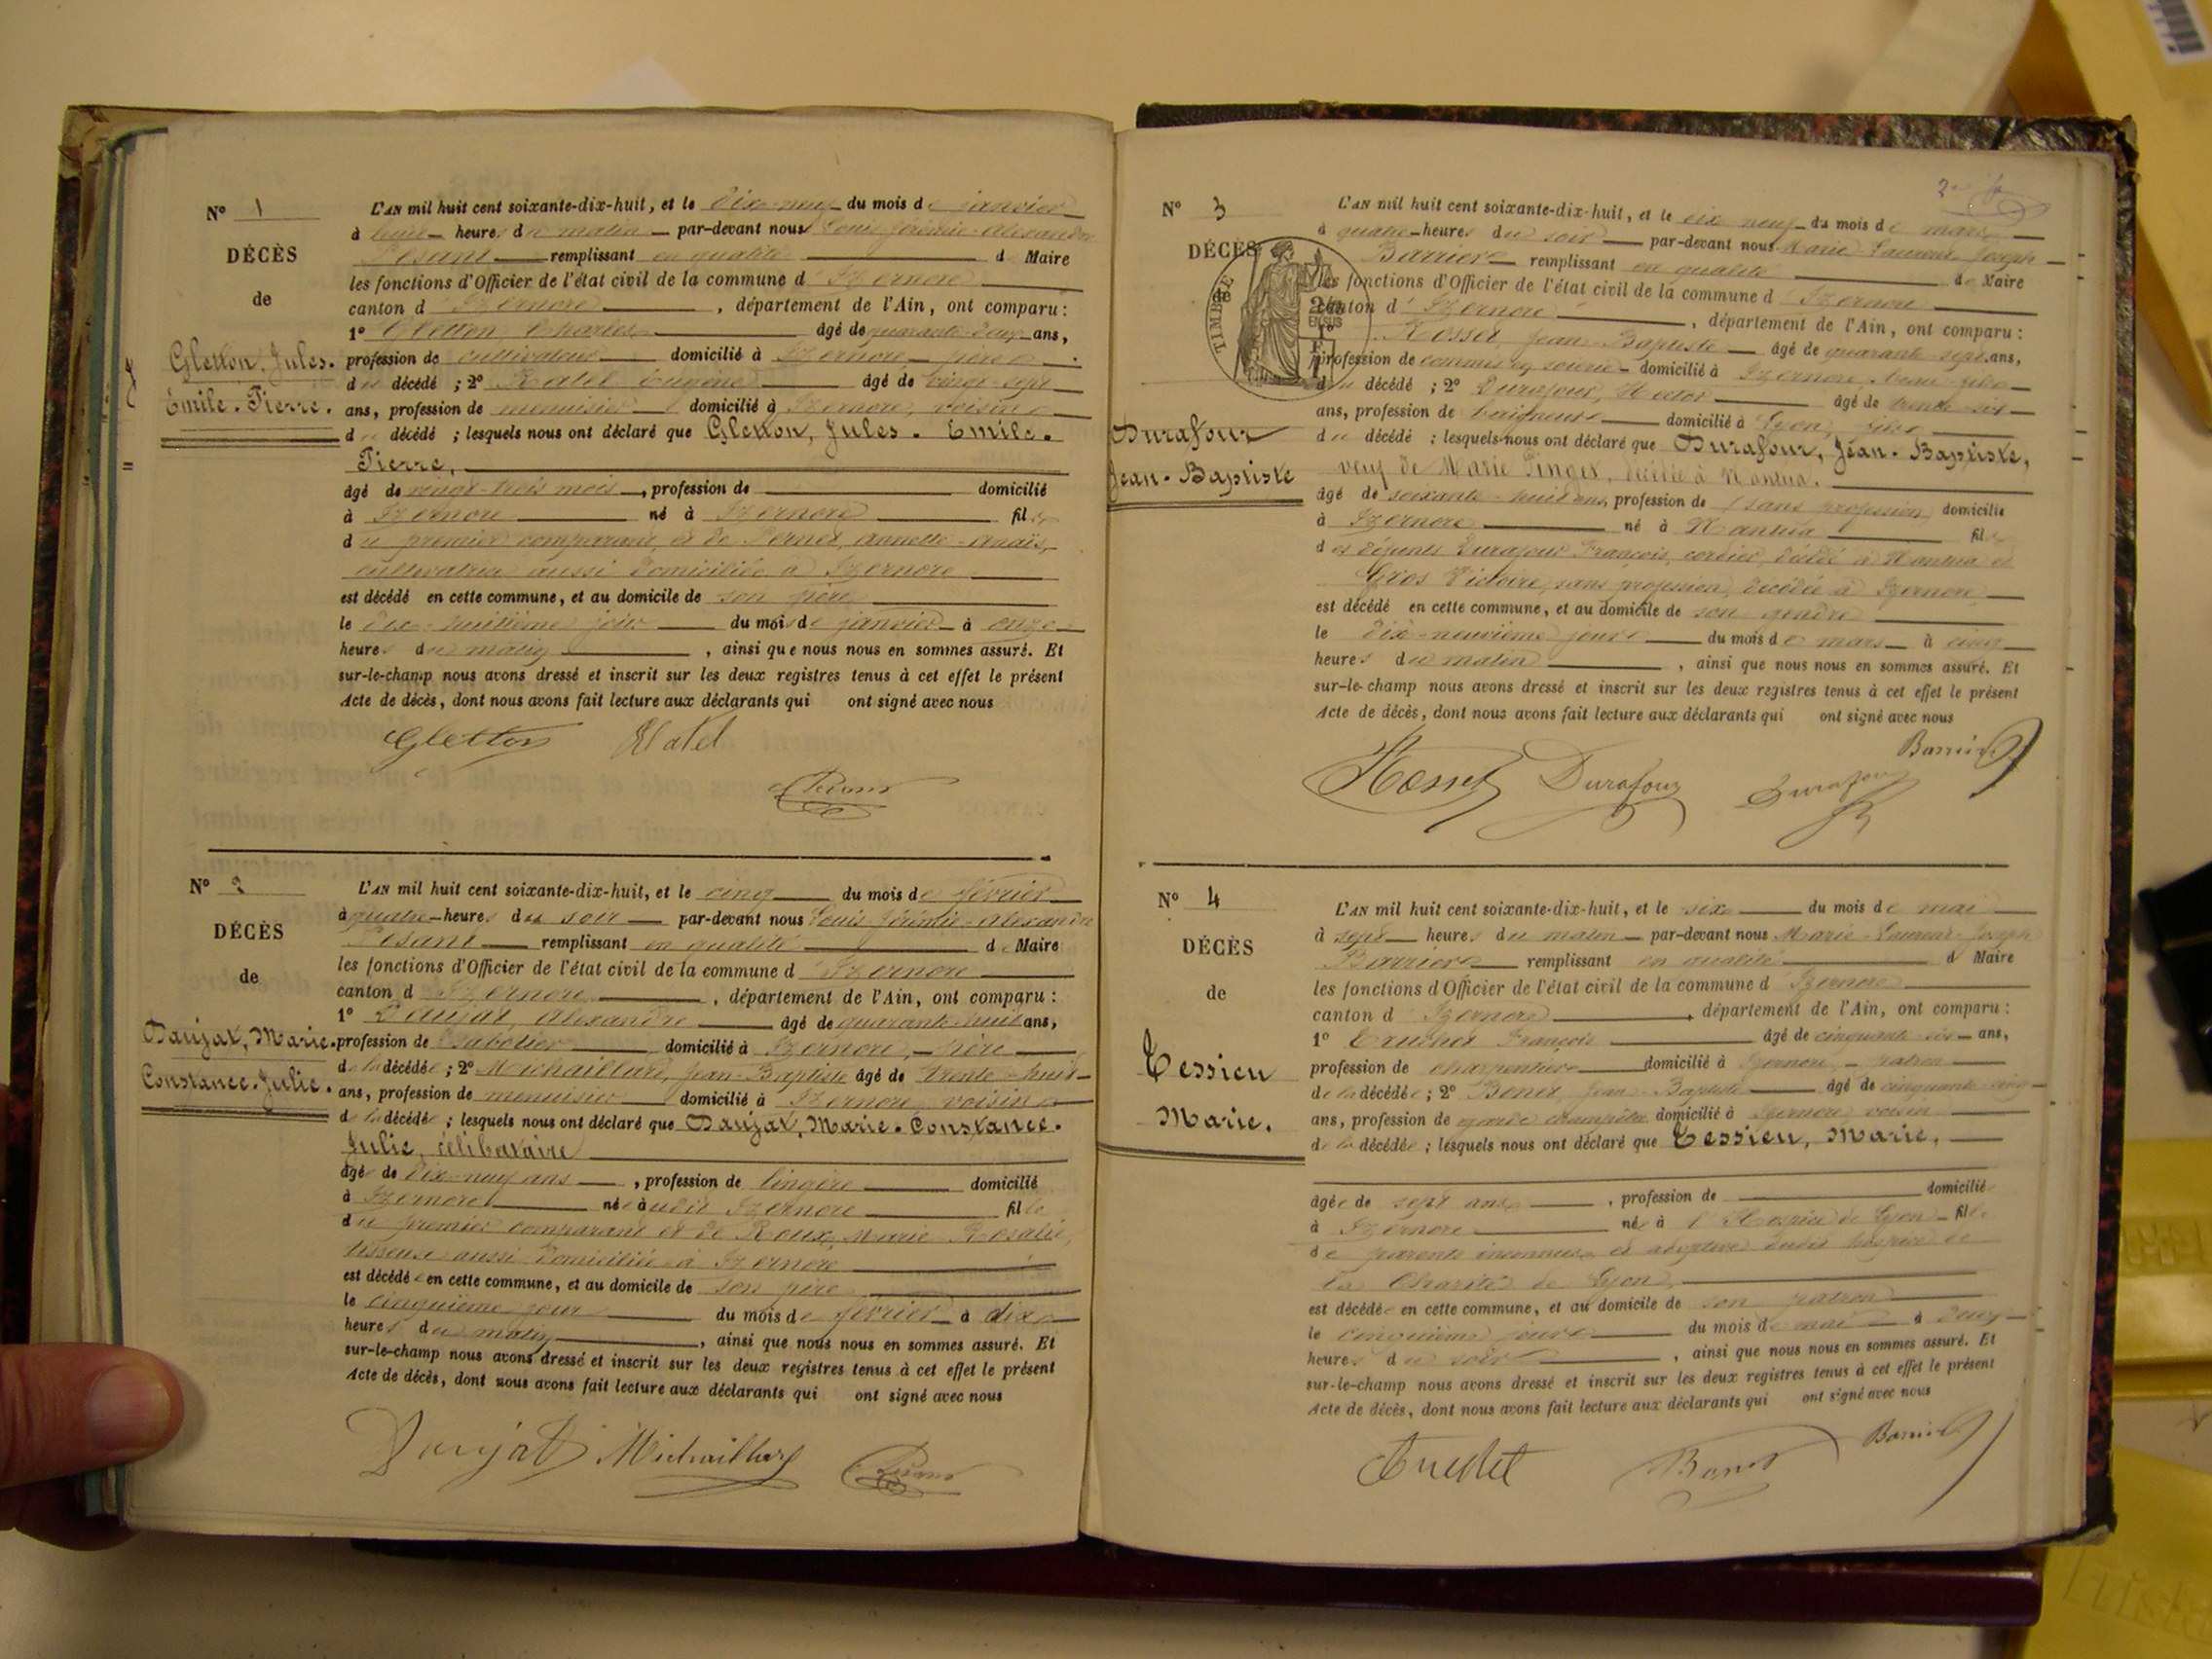 N° 1
DÉCÈS
de
Gletton, Jules.
Emile. Pierre.
L'AN mil huit cent soixante-dix-huit, et le dix-neuf du mois de janvier
à huit heures du matin par-devant nous Louis Jérémie Alexandre
Pesant remplissant en qualité de Maire
les fonctions d'Officier de l'état civil de la commune d'Izernore
canton d'Izernore, département de l'Ain, ont comparu :
1° Gletton, Charles âgé de quarante-deux ans,
profession de cultivateur domicilié à Izernore, père
du décédé ; 2° Ratel Eugène âgé de vingt-sept
ans, profession de menuisier domicilié à Izernore, voisin
du décédé ; lesquels nous ont déclaré que Gletton, Jules. Emile.
Pierre,
âgé de vingt-trois mois, profession de domicilié
à Izernore né à Izernore fils
du premier comparant, et de Pernet, Annette-Anaïs,
cultivatrice aussi domiciliée à Izernore
est décédé en cette commune, et au domicile de son père
le dix-huitième jour du mois de janvier à onze
heures du matin, ainsi que nous nous en sommes assuré. Et
sur-le-champ nous avons dressé et inscrit sur les deux registres tenus à cet effet le présent
Acte de décès, dont nous avons fait lecture aux déclarants qui ont signé avec nous
Gletton Ratel
Pesant
N° 2
DÉCÈS
de
Daujat, Marie.
Constance. Julie.
L'AN mil huit cent soixante-dix-huit, et le cinq du mois de février
à quatre heures du soir par-devant nous Louis Jérémie-Alexandre
Pesant remplissant en qualité de Maire
les fonctions d'Officier de l'état civil de la commune d'Izernore
canton d'Izernore, département de l'Ain, ont comparu :
1° Daujat, Alexandre âgé de quarante-huit ans,
profession de sabotier domicilié à Izernore, père
de la décédée ; 2° Michaillard, Jean-Baptiste âgé de trente-huit
ans, profession de menuisier domicilié à Izernore, voisin
de la décédée ; lesquels nous ont déclaré que Daujat, Marie. Constance.
Julie, célibataire
âgée de dix-neuf ans, profession de lingère domicilié
à Izernore née à udit Izernore fille
du premier comparant et de Roux, Marie Rosalie,
tisseuse aussi domiciliée à Izernore
est décédée en cette commune, et au domicile de son père
le cinquième jour du mois de février à dix
heures du matin, ainsi que nous nous en sommes assuré. Et
sur-le-champ nous avons dressé et inscrit sur les deux registres tenus à cet effet le présent
Acte de décès, dont nous avons fait lecture aux déclarants qui ont signé avec nous
Daujat Michaillard Pesant
N° 3
DÉCÈS
de
TIMBRE
2/10
EN SUS
Durafour
Jean-Baptiste
L'AN mil huit cent soixante-dix-huit, et le dix neuf du mois de mars
à quatre heures du soir par-devant nous Marie Laurent Joseph
Barrier remplissant en qualité de Maire
les fonctions d'Officier de l'état civil de la commune d'Izernore
canton d'Izernore, département de l'Ain, ont comparu :
1° Rosset, Jean-Baptiste âgé de quarante sept ans,
profession de domicilié à Izernore, beau-fils
du décédé ; 2° Durafour, Hector âgé de trente-six
ans, profession de domicilié à Lyon, fils
du décédé ; lesquels nous ont déclaré que Durafour, Jean-Baptiste,
veuf de Marie Pinget, décédée à Nantua.
âgé de soixante-huit ans, profession de sans profession domicilié
à Izernore né à Nantua fils
des défunts Durafour François, cordier, décédé à Nantua et
Gros Victoire, sans profession, décédée à Izernore
est décédé en cette commune, et au domicile de son gendre
le dix-neuvième jour du mois de mars à cinq
heures du matin, ainsi que nous nous en sommes assuré. Et
sur-le-champ nous avons dressé et inscrit sur les deux registres tenus à cet effet le présent
Acte de décès, dont nous avons fait lecture aux déclarants qui ont signé avec nous
Barrier
Rosset Durafour Durafour
N° 4
DÉCÈS
de
Tessieu
Marie.
L'AN mil huit cent soixante-dix-huit, et le six du mois de mai
à sept heures du matin par-devant nous Marie-Laurent-Joseph
Barrier remplissant en qualité de Maire
les fonctions d'Officier de l'état civil de la commune d'Izernore
canton d'Izernore, département de l'Ain, ont comparu :
1° François âgé de cinquante six ans,
profession de charpentier domicilié à Izernore, patron
de la décédée ; 2° Benet, Jean-Baptiste âgé de cinquante cinq
ans, profession de garde champêtre domicilié à Izernore voisin
de la décédée ; lesquels nous ont déclaré que Tessieu, Marie,
âgée de sept ans, profession de domicilié
à Izernore née à l'Hospice de Lyon fille
de parents inconnus et adoptive dudit hospice de
la Charité de Lyon
est décédée en cette commune, et au domicile de son patron
le cinquième jour du mois de mai à deux
heures du soir, ainsi que nous nous en sommes assuré. Et
sur-le-champ nous avons dressé et inscrit sur les deux registres tenus à cet effet le présent
Acte de décès, dont nous avons fait lecture aux déclarants qui ont signé avec nous
Benet Barrier